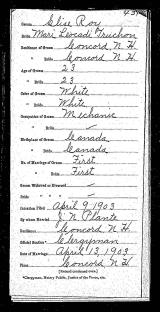 Groom, Elise Roy
Bride, Mari Leocadi Truchon
Residence of Groom Concord N. H.
" " Bride Concord N. H.
Age of Groom 23
" " Bride 23
Color of Groom White
" " Bride White
Occupation of Groom Mechanic
" " Bride
Birthplace of Groom Canada
" " Bride Canada
No. of Marriage of Groom First
" " " Bride First
Groom Widowed or Divorced
Bride " " "
Intention Filed April 9 1903
By whom Married J. N. Plante
Residence Concord N. H.
Official Station* Clergyman
Date of Marriage April 13, 1903
Place Concord N. H.
(Record continued over.)
*Clergyman, Notary Public, Justice of the Peace, etc.